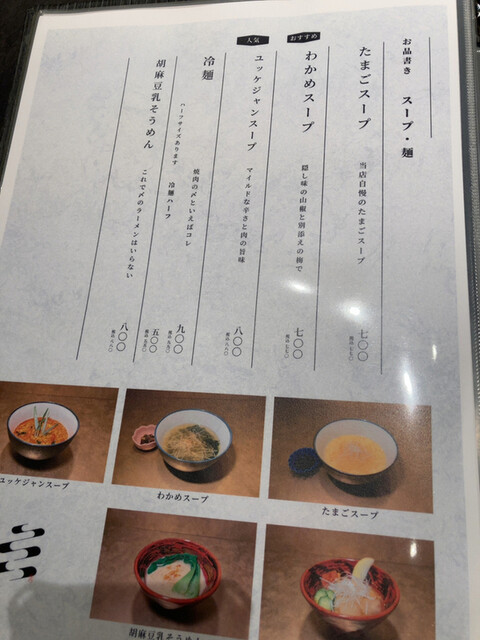 お品書き スープ・麺
たまごスープ
当店自慢のたまごスープ
七〇〇
税込 七七〇
おすすめ
わかめスープ
隠し味の山椒と別添えの梅で
七〇〇
税込 七七〇
人気
ユッケジャンスープ
マイルドな辛さと肉の旨味
八〇〇
税込 八八〇
冷麺
焼肉の〆といえばコレ
九〇〇
税込 九九〇
ハーフサイズあります
冷麺ハーフ
五〇〇
税込 五五〇
胡麻豆乳そうめん
これで〆のラーメンはいらない
八〇〇
税込 八八〇
ユッケジャンスープ
わかめスープ
たまごスープ
胡麻豆乳そうめん